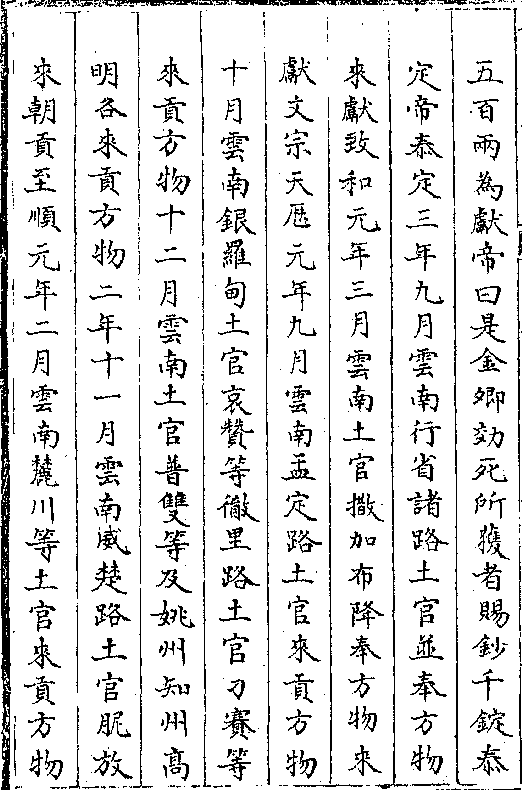 五百兩為獻帝曰是金卿効死所獲者賜鈔千錠泰
定帝泰定三年九月雲南行省諸路土官並奉方物
來獻致和元年三月雲南土官撒加布降奉方物來
獻文宗天厯元年九月雲南孟定路土官來貢方物
十月雲南銀羅甸土官哀贊等徹里路土官刀賽等
來貢方物十二月雲南土官普雙等及姚州知州高
明各來貢方物二年十一月雲南威楚路土官昵放
來朝貢至順元年二月雲南麓川等土官來貢方物